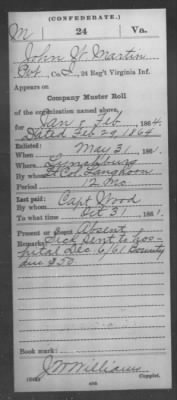 (CONFEDERATE.)
M 24 Va.
John Y. Martin
Pvt, Co. I, 24 Reg't Virginia Inf.
Appears on
Company Muster Roll
of the organization named above,
for Jan & Feb, 1864.
Dated Feb 29, 1864
Enlisted:
When May 31, 1861.
Where Lynchburg
By whom Lt Col Langhorn
Period 12 Mo
Last paid:
By whom Capt Wood
To what time Oct 31, 1861.
Present or absent Absent
Remarks: Sick Sent to hos-
pital Dec 6/61 Bounty
due $50
Book mark:
J W Williams
Copyist.